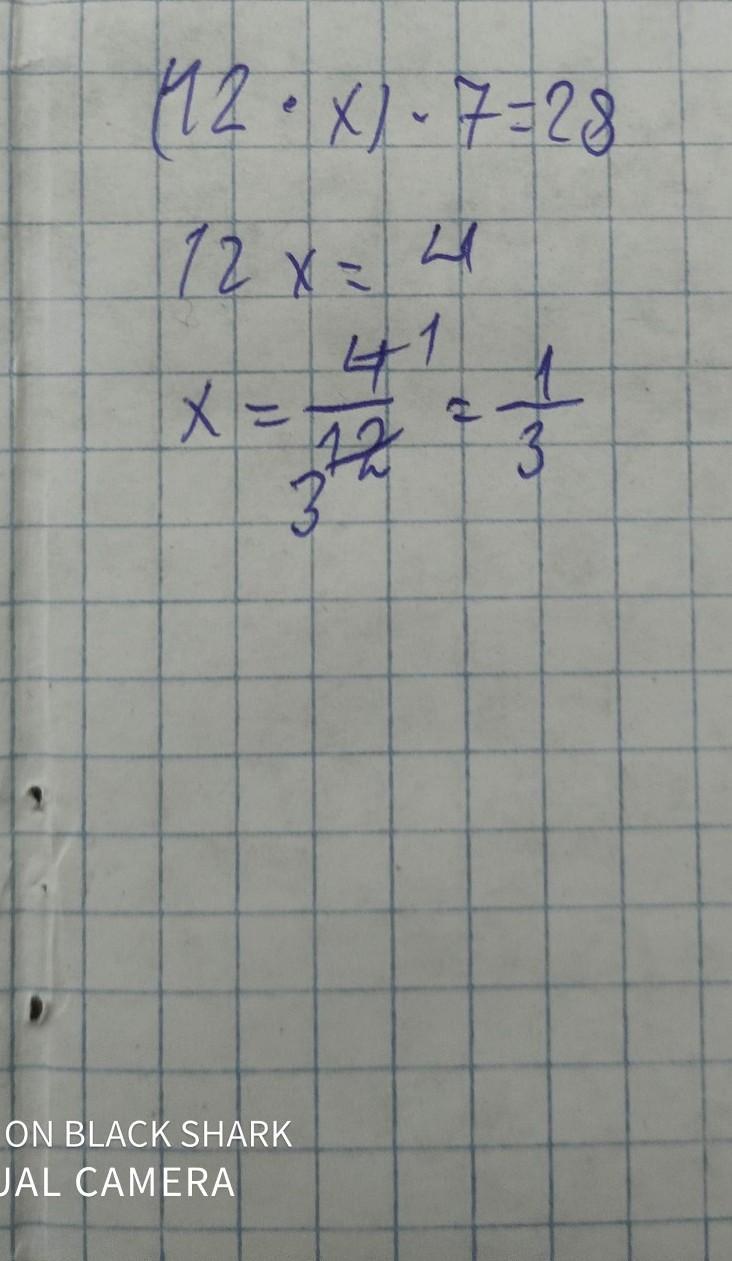 (12 · x) · 7 = 28
12 x = 4
x = 4/12 = 1/3
1
3
ON BLACK SHARK
UAL CAMERA